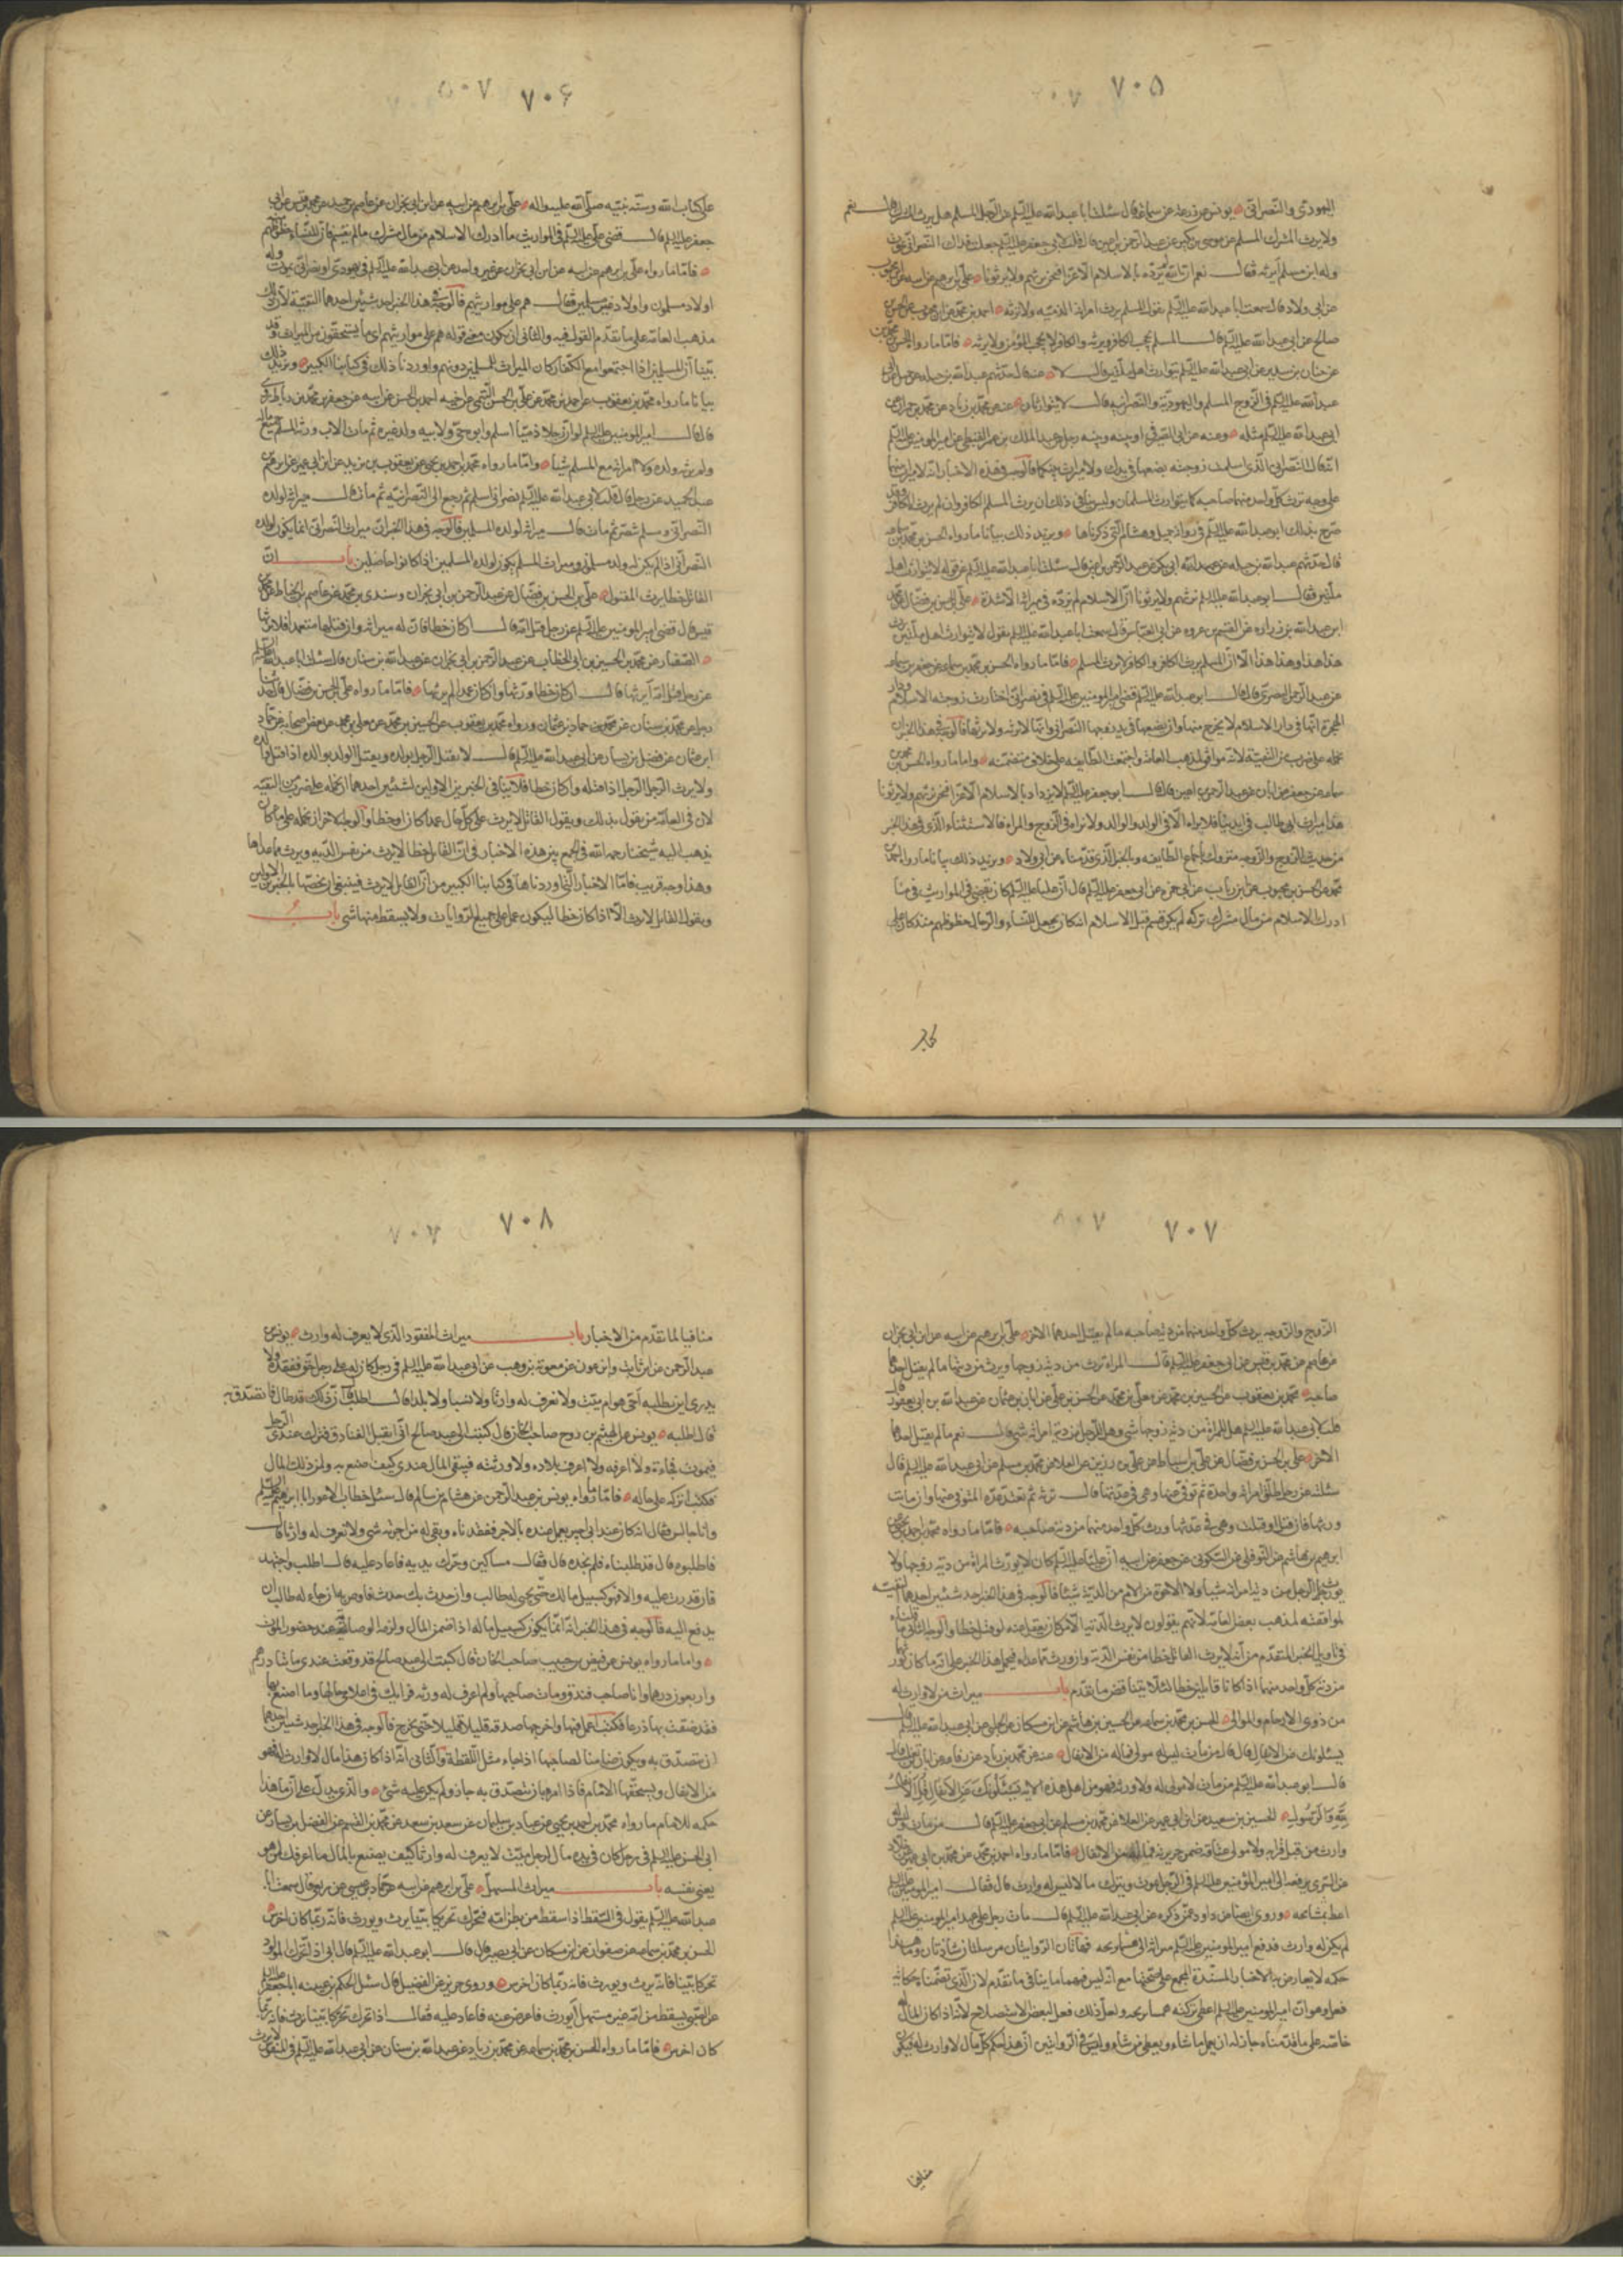 ٧٠٥
اليهودي والنصراني يونس عن زرعه عن سماعة قال سئلت ابا عبد الله عليه السلم عن الرجل المسلم هل يرث المشرك قال نعم
ولا يرث المشرك المسلم عن موسى بن بكر عن عبد الرحمن بن اعين قال قلت لابي جعفر عليه السلم جعلت فداك النصراني يموت
وله ابن مسلم أيرثه فقال نعم ان الله لم يزده بالاسلام الا عزا فنحن نرثهم ولا يرثونا علي بن ابرهيم عن ابيه عن ابن محبوب
عن ابي ولاد قال سمعت ابا عبد الله عليه السلم يقول المسلم يرث امراته الذمية ولا ترثه احمد بن محمد عن ابن محبوب عن الحسن بن
صالح عن ابي عبد الله عليه السلم قال المسلم يحجب الكافر ويرثه والكافر لا يحجب المؤمن ولا يرثه فاما ما رواه الحسن بن محمد بن
عن حنان بن سدير عن ابي عبد الله عليه السلم يتوارث اهل ملتين قال لا عنه قال حدثهم عبد الله بن جبله عن جميل عن ابي
عبد الله عليه السلم في الزوج المسلم واليهودية والنصرانية قال لا يتوارثان عنه عن محمد بن زياد عن محمد بن حمران عن
ابي عبد الله عليه السلم مثله وعنه عن عبد الملك بن عمير القبطي عن امير المومنين عليه السلم
انه قال للنصراني الذي اسلمت زوجته بضعها في يدك ولا ميراث بينكما فالوجه في هذه الاخبار انه لا ميراث بينهما
على وجه يرث كل واحد منهما صاحبه كما يتوارث المسلمان وليس ينافي ذلك ان يرث المسلم الكافر وان لم يرثه الكافر وقد
صرح بذلك ابو عبد الله عليه السلم في رواية جميل وهشام التي ذكرناها ويزيد ذلك بيانا ما رواه الحسن بن محمد بن سماعه
قال حدثهم عبد الله بن جبله عن ابي بكر عن عبد الرحمن بن اعين قال سئلت ابا عبد الله عليه السلم عن قوله لا يتوارث اهل
ملتين فقال ابو عبد الله عليه السلم نرثهم ولا يرثونا ان الاسلام لم يزده في ميراثه الا شدة علي بن الحسن بن فضال عن محمد
ابن عبد الله بن زراره عن القسم بن عروه عن ابي العباس قال سمعت ابا عبد الله عليه السلم يقول لا يتوارث اهل ملتين يرث
هذا هذا وهذا هذا الا ان المسلم يرث الكافر والكافر لا يرث المسلم فاما ما رواه الحسن بن محمد بن سماعه عن جعفر بن سماعه
عن عبد الرحمن البصري قال قال ابو عبد الله عليه السلم قضى امير المومنين عليه السلم في نصراني اختارت زوجته الاسلام ودار
الهجرة انها في دار الاسلام لا يخرج منها وان بضعها في يد زوجها النصراني وانها لا ترثه ولا يرثها فالوجه في هذا الخبر ان
نحمله على ضرب من التقية لانه موافق لمذهب العامة واجتمعت الطائفه على خلاف متضمنه واما ما رواه الحسن بن محمد بن
سماعه عن جعفر عن ابان عن عبد الرحمن بن اعين قال قال ابو جعفر عليه السلم لا يزداد بالاسلام الا عزا فنحن نرثهم ولا يرثونا
هذا ميراث ابي طالب في ايدينا فلا نراه الا في الولد والوالد ولا نراه في الزوج والمراه فالاستثناء الذي في هذا الخبر
من حديث الزوج والزوجه متروك باجماع الطايفه وبالخبر الذي قدمناه عن ابي ولاد ويزيد ذلك بيانا ما رواه احمد بن
محمد عن الحسن بن محبوب عن ابن رياب عن ابي حمزه عن ابي جعفر عليه السلم قال ان عليا عليه السلم كان يقضي في المواريث فيما
ادرك الاسلام من مال مشرك تركه لم يكن قسم قبل الاسلام انه كان يجعل للنساء والرجال حظوظهم منه كان على
٧٠٦
على كتاب الله وسنه نبيه صلى الله عليه واله علي بن ابرهيم عن ابيه عن ابن ابي نجران عن عاصم بن حميد عن محمد بن قيس عن ابي
جعفر عليه السلم قال قضى علي عليه السلم في المواريث ما ادرك الاسلام من مال مشرك ما لم يقسم فان للنساء حظوظهم
فاما ما رواه علي بن ابرهيم عن ابيه عن ابن ابي نجران عن غير واحد عن ابي عبد الله عليه السلم في يهودي او نصراني يموت وله
اولاد مسلمون واولاد غير مسلمين فقال هم على مواريثهم فالوجه في هذا الخبر احد شيئين احدهما التقية لان ذلك
مذهب العامة على ما تقدم القول فيه والثاني ان يكون معنى قوله هم على مواريثهم اي ما يستحقون من الميراث وقد
بينا ان المسلمين اذا اجتمعوا مع الكفار كان الميراث للمسلمين دونهم واوردنا ذلك في كتابنا الكبير ويزيد ذلك
بيانا ما رواه محمد بن يعقوب عن احمد بن محمد عن علي بن الحسن التيمي عن اخيه احمد بن الحسن عن ابيه عن جعفر بن محمد عن ابن رباط
قال قال امير المومنين عليه السلم لو ان رجلا ذميا اسلم وابوه حي ولابيه ولد غيره ثم مات الاب ورثه المسلم جميع ماله
ولم يرثه ولده ولا امراته مع المسلم شيئا واما ما رواه محمد بن احمد بن يحيى عن يعقوب بن يزيد عن ابن ابي عمير عن ابرهيم بن
عبد الحميد عن رجل قال قلت لابي عبد الله عليه السلم نصراني اسلم ثم رجع الى النصرانية ثم مات قال ميراثه لولده
النصراني ومسلم تنصر ثم مات قال ميراثه لولده المسلمين فالوجه في هذا الخبر ان ميراث النصراني انما يكون لولده
النصراني اذا لم يكن له ولد مسلمون وميراث المسلم يكون لولده المسلمين اذا كانوا حاصلين باب ان
القاتل خطا يرث المقتول علي بن الحسن بن فضال عن عبد الرحمن بن ابي نجران وسندي بن محمد عن عاصم بن حميد الحناط عن محمد بن
قيس قال قضى امير المومنين عليه السلم عن رجل قتل امه قال ان كان خطا فان له ميراثه وان قتلها متعمدا فلا يرثها
الصفار عن محمد بن الحسين بن ابي الخطاب عن عبد الرحمن بن ابي نجران عن عبد الله بن سنان قال سئلت ابا عبد الله عليه السلم
عن رجل قتل امه أيرثها قال ان كان خطا ورثها وان كان عمدا لم يرثها فاما ما رواه علي بن الحسن بن فضال قال حدثنا
رجل عن محمد بن سنان عن حماد بن عثمان ورواه محمد بن يعقوب عن الحسين بن محمد عن معلى بن محمد عن بعض اصحابه عن حماد
ابن عثمان عن فضيل بن يسار عن ابي عبد الله عليه السلم قال لا يقتل الرجل بولده ويقتل الولد بوالده اذا قتل والده
ولا يرث الرجل الرجل اذا قتله وان كان خطا فلا ينافي الخبرين الاولين لشيئين احدهما ان نحمله على ضرب من التقيه
لان في العامة من يقول بذلك ويقول القاتل لا يرث على كل حال عمدا كان او خطا والوجه الاخر ان نحمله على ما كان
يذهب اليه شيخنا رحمه الله في الجمع بين هذه الاخبار في ان القاتل خطا لا يرث من نفس الدية ويرث ما عداها
وهذا وجه قريب فاما الاخبار التي اوردناها في كتابنا الكبير من ان القاتل لا يرث فينبغي ان نخصها بالخبرين الاولين
ونقول القاتل لا يرث الا اذا كان خطا ليكون عملا على جميع الروايات ولا يسقط منها شي باب
٧٠٧
الزوج والزوجه يرث كل واحد منهما من دية صاحبه ما لم يقتل احدهما الاخر علي بن ابرهيم عن ابيه عن ابن ابي نجران
عن عاصم عن محمد بن قيس عن ابي جعفر عليه السلم قال المراة ترث من دية زوجها ويرث من ديتها ما لم يقتل احدهما
صاحبه محمد بن يعقوب عن الحسين بن محمد عن معلى بن محمد عن الحسن بن علي عن ابان بن عثمان عن عبد الله بن ابي يعفور قال
قلت لابي عبد الله عليه السلم هل للمراة من دية زوجها شي وهل للرجل من دية امراته شي قال نعم ما لم يقتل احدهما
الاخر علي بن الحسن بن فضال عن علي بن اسباط عن علا بن رزين عن محمد بن مسلم عن ابي عبد الله عليه السلم قال
سئلته عن رجل طلق امراته واحدة ثم توفي عنها وهي في عدتها قال ترثه ثم تعتد عدة المتوفى عنها وان ماتت
ورثها فان قتل او قتلت وهي في عدتها ورث كل واحد منهما من دية صاحبه فاما ما رواه محمد بن احمد بن يحيى عن
ابرهيم بن هاشم عن النوفلي عن السكوني عن جعفر عن ابيه ان عليا عليه السلم كان لا يورث المراة من دية زوجها ولا
يورث الرجل من دية امراته شيئا ولا الاخوة من الام من الدية شيئا فالوجه في هذا الخبر احد شيئين احدهما التقية
لموافقته لمذهب بعض العامة لانهم يقولون لا يرث الدية
في تاويل الخبر المتقدم من انه لا يرث القاتل خطا من نفس الدية وان ورث مما عداه فيحمل هذا الخبر على انه ما كان يورثهما
من دية كل واحد منهما اذا كانا قاتلين خطا لئلا يتناقض ما تقدم باب ميراث من لا وارث له
من ذوي الارحام والموالي الحسن بن محمد بن سماعه عن الحسين بن هاشم عن ابن مسكان عن الحلبي عن ابي عبد الله عليه السلم قال
يسئلونك عن الانفال قال من مات وليس له مولى فماله من الانفال عنه عن محمد بن زياد عن رفاعه عن ابان بن تغلب قال
قال ابو عبد الله عليه السلم من مات لا مولى له ولا ورثه فهو من اهل هذه الاية يَسْئَلُونَكَ عَنِ الانفالِ قُلِ الانفالُ
لِلهِ وَالرَّسُولِ الحسين بن سعيد عن ابن ابي عمير عن العلا عن محمد بن مسلم عن ابي جعفر عليه السلم قال من مات وليس له
وارث من قبل قرابته ولا مولى عتاقه قد ضمن جريرته فماله من الانفال فاما ما رواه احمد بن محمد عن محمد بن ابي عمير عن خلاد
عن السري يرفعه الى امير المومنين عليه السلم في الرجل يموت ويترك مالا ليس له وارث قال فقال امير المومنين عليه السلم
اعط همشاريجه وروى ايضا عن داود عمن ذكره عن ابي عبد الله عليه السلم قال مات رجل على عهد امير المومنين عليه السلم
لم يكن له وارث فدفع امير المومنين عليه السلم ميراثه الى همشاريجه فهاتان الروايتان مرسلتان شاذتان وما هذا
حكمه لا يعارض به الاخبار المسندة المجمع على صحتها مع انه ليس فيهما ما ينافي ما تقدم لان الذي تضمناه حكاية
فعل وهو ان امير المومنين عليه السلم اعطى تركته همشاريجه ولعل ذلك فعل لبعض الاستصلاح لانه اذا كان المال له
خاصه على ما قدمناه جاز له ان يعمل ما شاء ويعطي من شاء وليس في الروايتين ان هذا حكم كل مال لا وارث له فيكون
منافيا
٧٠٨
منافيا لما تقدم من الاخبار باب ميراث المفقود الذي لا يعرف له وارث يونس بن
عبد الرحمن عن ابن ثابت وابن عون عن معوية بن وهب عن ابي عبد الله عليه السلم في رجل كان له على رجل حق ففقده ولا
يدري اين يطلبه أحي هو ام ميت ولا يعرف له وارثا ولا نسبا ولا بلدا قال اطلب قال ان ذلك قد طال فاتصدق به
قال اطلبه يونس عن الهيثم بن روح صاحب الخان قال كتبت الى عبد صالح اني اتقبل الفنادق فينزل عندي الرجل
فيموت فجاءة ولا اعرفه ولا اعرف بلاده ولا ورثته فيبقى المال عندي كيف اصنع به ولمن ذلك المال
فكتب اتركه على حاله فاما ما رواه يونس بن عبد الرحمن عن هشام بن سالم قال سئل خطاب الاعور ابا ابرهيم عليه السلم
وانا جالس فقال انه كان عند ابي اجير يعمل عنده بالاجر ففقدناه وبقي له من اجره شي ولا نعرف له وارثا قال
فاطلبوه قال قد طلبناه فلم نجده قال فقال مساكين وحرك يديه فاعاد عليه قال اطلب واجهد
فان قدرت عليه والا فهو كسبيل مالك حتى يجي له طالب وان حدث بك حدث فاوص به ان جاء له طالب ان
يدفع اليه فالوجه في هذا الخبر انه انما يكون كسبيل ماله اذا ضمن المال ولزمه الوصاية به عند حضور الموت
واما ما رواه يونس عن فيض بن حبيب صاحب الخان قال كتبت الى عبد صالح قد وقعت عندي مائتا درهم
واربعون درهما وانا صاحب فندق ومات صاحبها ولم اعرف له ورثه فرايك في اعلامي حالها وما اصنع بها
فقد ضقت بها ذرعا فكتب اعمل فيها واخرجها صدقه قليلا قليلا حتى يخرج فالوجه في هذا الخبر احد شيئين احدهما
ان يتصدق به ويكون ضامنا لصاحبها اذا جاء مثل اللقطة والثاني انه اذا كان هذا مال لا وارث له فهو
من الانفال ويستحقها الامام فاذا امره بان يتصدق به جاز ولم يكن عليه شئ والذي يدل على ان ما هذا
حكمه للامام ما رواه محمد بن احمد بن يحيى عن عباد بن سليمان عن سعد بن سعد عن محمد بن القسم عن الفضيل بن يسار عن
ابي الحسن عليه السلم في رجل كان في يده مال لرجل ميت لا يعرف له وارثا كيف يصنع بالمال قال ما اعرفك لمن هو
يعني نفسه باب ميراث المستهل علي بن ابرهيم عن ابيه عن حماد بن عيسى عن ربعي قال سمعت ابا
عبد الله عليه السلم يقول في السقط اذا سقط من بطن امه فتحرك تحركا بينا يرث ويورث فانه ربما كان اخرس
الحسن بن محمد بن سماعه عن صفوان عن ابن مسكان عن ابي بصير قال قال ابو عبد الله عليه السلم قال ابي اذا تحرك المولود
تحركا بينا فانه يرث ويورث فانه ربما كان اخرس وروى حريز عن الفضيل قال سئل الحكم بن عيينه ابا جعفر عليه السلم
عن الصبي يسقط من امه غير مستهل أيورث فاعرض عنه فاعاد عليه فقال اذا تحرك تحركا بينا ورث فانه ربما
كان اخرس فاما ما رواه الحسن بن محمد بن سماعه عن محمد بن زياد عن عبد الله بن سنان عن ابي عبد الله عليه السلم في المنفوس لا يرث